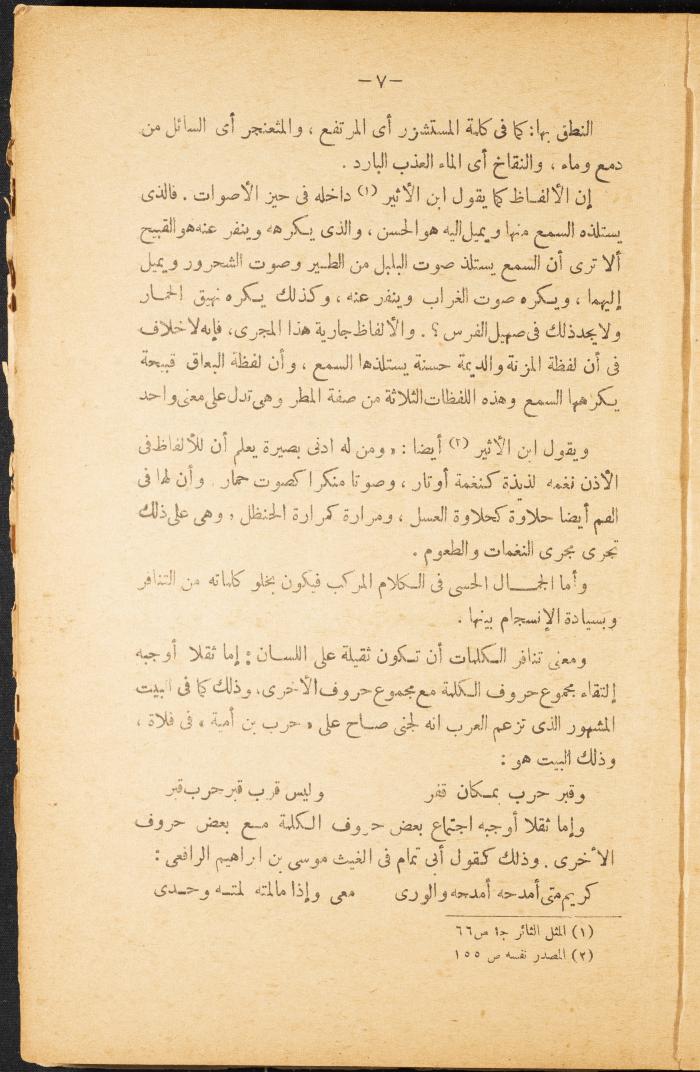 —٧—
النطق بها: كما فى كلمة المستشزر أى المرتفع ، والمثعنجر أى السائل من
دمع وماء ، والنقاخ أى الماء العذب البارد .
إن الألفاظ كما يقول ابن الأثير (١) داخله فى حيز الأصوات . فالذى
يستلذه السمع منها ويميل اليه هو الحسن ، والذى يكرهه وينفر عنه هو القبيح
ألا ترى أن السمع يستلذ صوت البلبل من الطير وصوت الشحرور ويميل
إليهما ، ويكره صوت الغراب وينفر عنه ، وكذلك يكره نهيق الحمار
ولا يجد ذلك فى صهيل الفرس ؟ . والألفاظ جارية هذا المجرى، فإنه لاخلاف
فى أن لفظة المزنة والديمة حسنة يستلذها السمع ، وأن لفظة البعاق قبيحة
يكرهها السمع وهذه اللفظات الثلاثة من صفة المطر وهى تدل على معنى واحد
ويقول ابن الأثير (٢) أيضا : « ومن له ادنى بصيرة يعلم أن للألفاظ فى
الاذن نغمه لذيذة كنغمة أوتار ، وصوتا منكرا كصوت حمار . وأن لها فى
الفم أيضا حلاوة كحلاوة العسل ، ومرارة كمرارة الحنظل , وهى على ذلك
تجرى مجرى النغمات والطعوم .
وأما الجمال الحسى فى الكلام المركب فيكون بخلو كلماته من التنافر
وبسيادة الإنسجام بينها .
ومعنى تنافر الكلمات أن تكون ثقيلة على اللسان : إما ثقلا أوجبه
إلتقاء مجموع حروف الكلمة مع مجموع حروف الأخرى، وذلك كما فى البيت
المشهور الذى تزعم العرب انه لجنى صاح على « حرب بن أمية » فى فلاة ،
وذلك البيت هو :
وقبر حرب بمكان قفر وليس قرب قبر حرب قبر
وإما ثقلا أوجبه اجتماع بعض حروف الكلمة مع بعض حروف
الأخرى . وذلك كقول أبى تمام فى الغيث موسى بن ابراهيم الرافعى :
كريم متى أمدحه أمدحه والورى معى وإذا مالمته لمتــه وحــدى
(١) المثل الثائر ج١ ص٦٦
(٢) المصدر نفسه ص ١٥٥